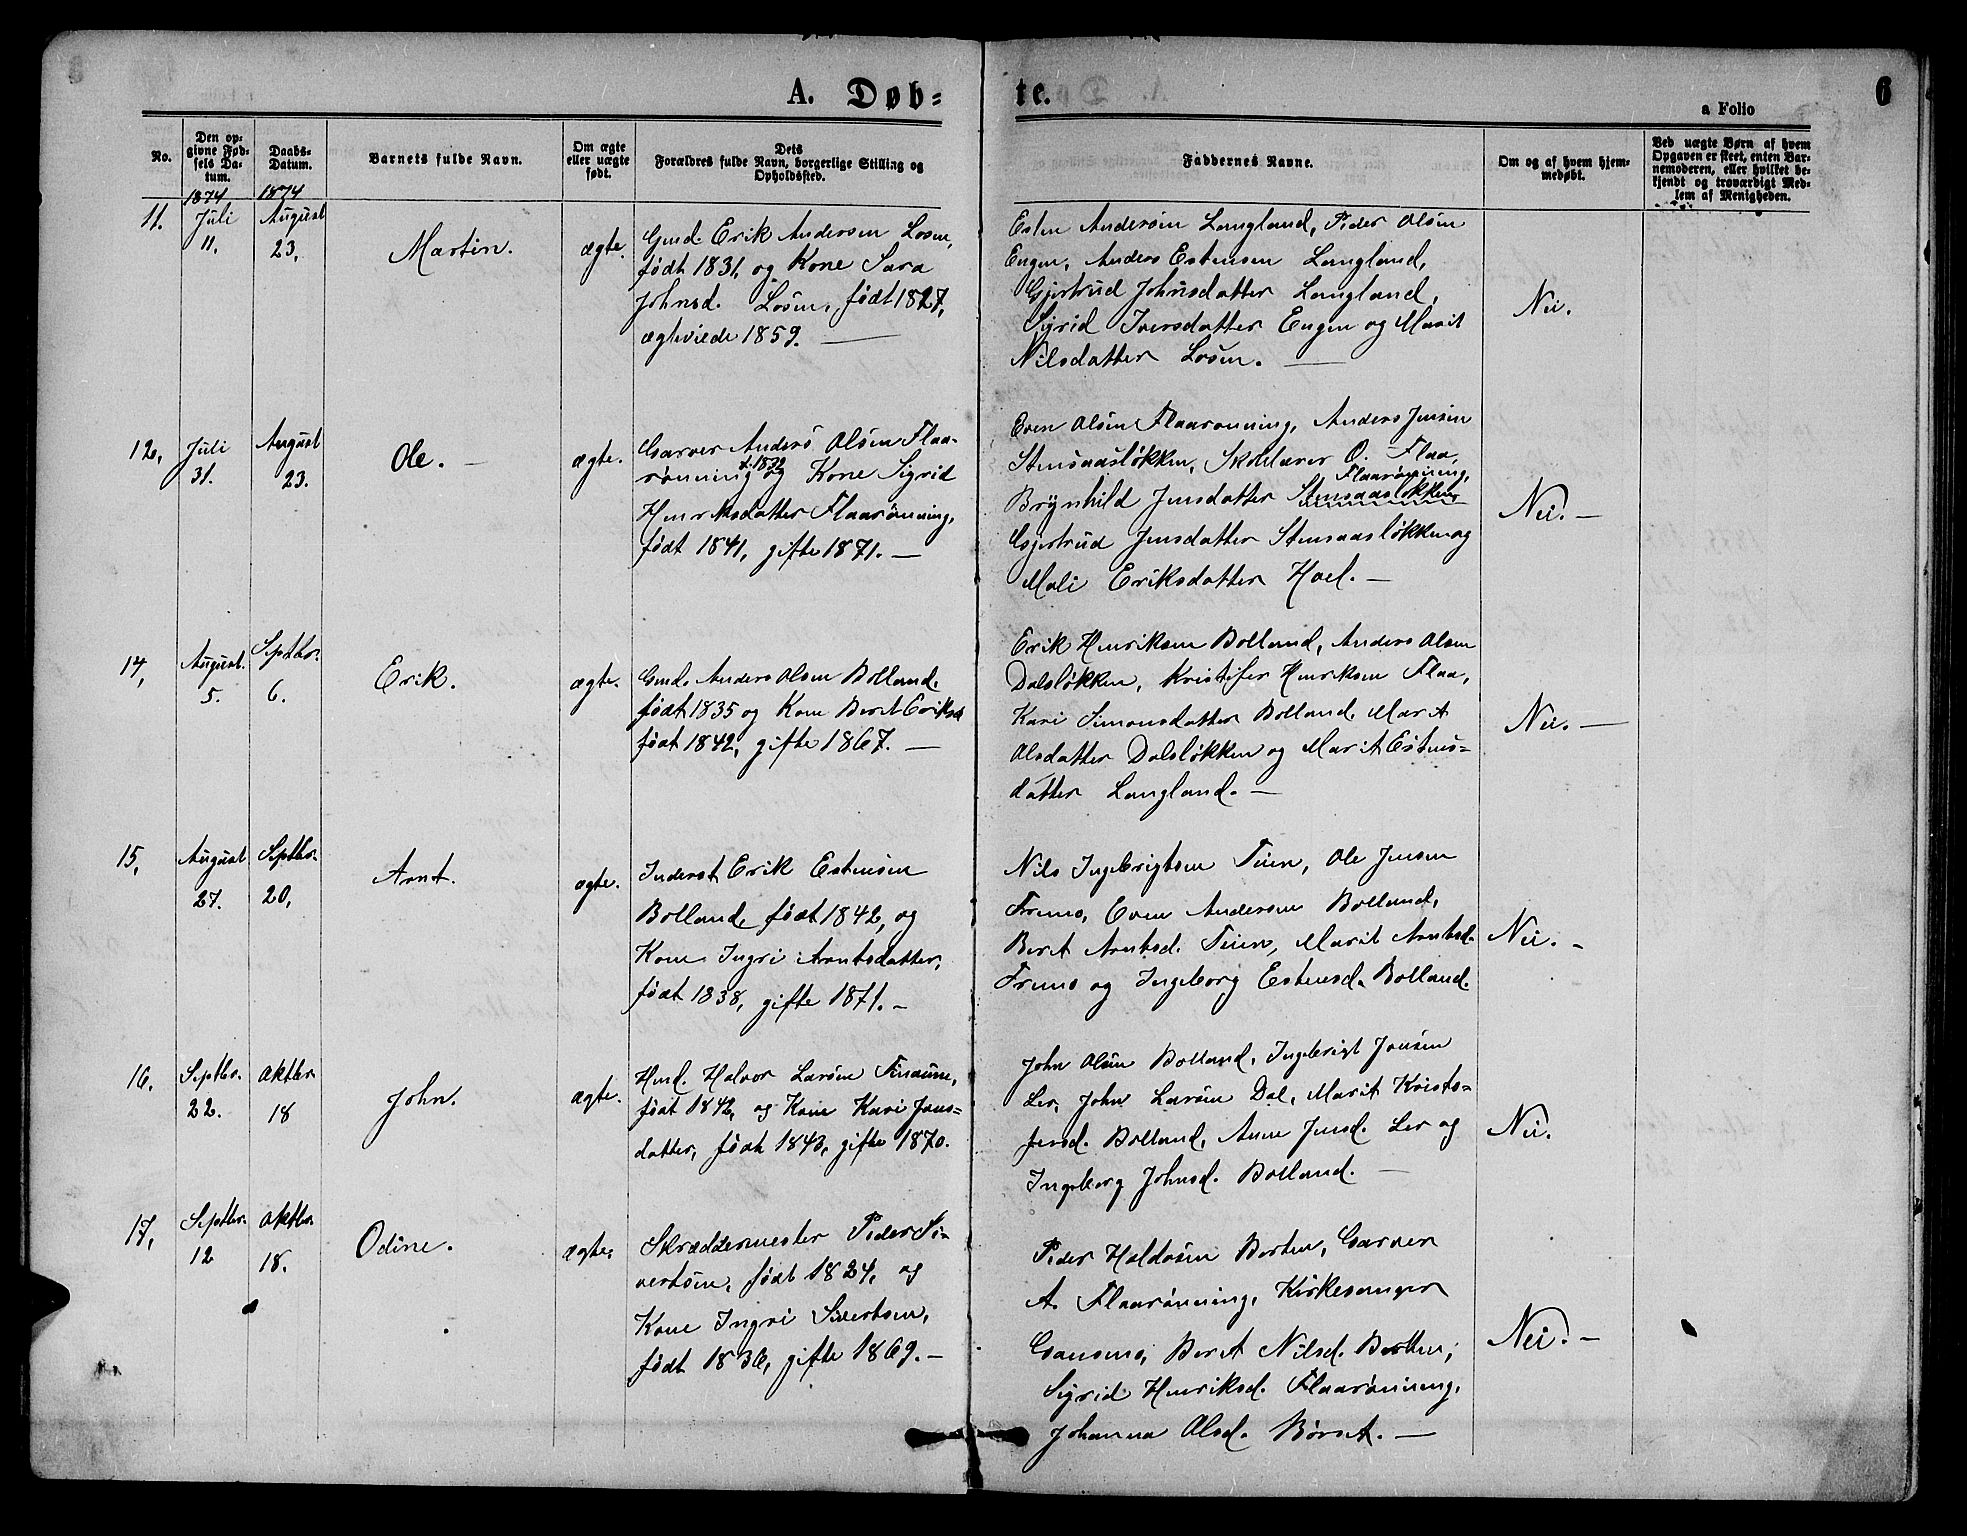 A. Døb=
te.
6
a Folio
No.
Den op=
givne Fød=
sels Da=
tum.
Daabs=
Datum.
Barnets fulde Navn.
Om ægte
eller uægte
født.
Dets
Forældres fulde Navn, borgerlige Stilling og
Opholdssted.
Faddernes Navne.
Om og af hvem hjem=
medøbt.
Ved uægte Børn af hvem
Opgaven er skeet, enten Bar=
nemoderen, eller hvilket be=
kjendt og troværdigt Med=
lem af Menigheden.
1874
1874
11.
Juli
11.
August
23.
Martin.
ægte.
Gmd. Erik Andersen Losen,
født 1831, og Kone Sara
Johnsd. Losen, født 1827,
ægteviede 1859. —
Esten Andersen Langland, Peder Olsen
Engen, Anders Estensen Langland,
Gjertrud Johnsdatter Langland,
Sigrid Iversdatter Engen og Marit
Nilsdatter Losen. —
Nei.
12,
Juli
31.
August
23.
Ole. —
ægte.
Garver Anders Olsen Flaa-
rønning f. 1839 og Kone Sigrid
Henriksdatter Flaarønning,
født 1841, gifte 1871. —
Even Olsen Flaarønning, Anders Jensen
Stensaasløkken, Skolelærer O. Flaa,
Flaarønning,
Brynhild Jensdatter Stensaasløkken
Gjertrud Jensdatter Stensaasløkken og
Mali Eriksdatter Hoel. —
Nei. —
14,
August.
5.
Septbr.
6.
Erik.
ægte.
Gmd. Anders Olsen Bolland,
født 1835 og Kone Berit Eriksd.
født 1842, gifte 1867. —
Erik Henriksen Bolland, Anders Olsen
Dalsløkken, Kristofer Henriksen Flaa,
Kari Simonsdatter Bolland, Marit
Olsdatter Dalsløkken og Marit Estens=
datter Langland. —
Nei. —
15,
August
27.
Septbr.
20,
Arnt.
ægte.
Inderst Erik Estensen
Bolland, født 1842, og
Kone Ingri Arntsdatter,
født 1838, gifte 1871. —
Nils Ingebrigtsen Tiien, Ole Jensen
Fremo, Even Andersen Bolland,
Berit Arntsd. Tiien, Marit Arntsd.
Fremo og Ingeborg Estensd. Bolland.
Nei. —
16,
Septbr.
22.
Oktbr.
18
John.
ægte.
Hmd. Halvor Larsen
født 1842, og Kone Kari Jons=
datter, født 1843, gifte 1870.
John Olsen Bolland, Ingebrigt Jonsen
Ler, John Larsen Dal, Marit Kristo=
fersd. Bolland, Anne Jensd. Ler og
Ingeborg Johnsd. Bolland. —
Nei.
17,
Septbr.
12
Oktbr.
18.
Odine.
ægte.
Skræddermester Peder Si=
vertsen, født 1824, og
Kone Ingri Sivertsen,
født 1836, gifte 1869. —
Peder Haldosen Borten, Garver
A. Flaarønning, Kirkesanger
Gansmo, Berit Nilsd. Borten,
Sigrid Henriksd. Flaarønning,
Johanna Olsd. Børset. —
Nei. —